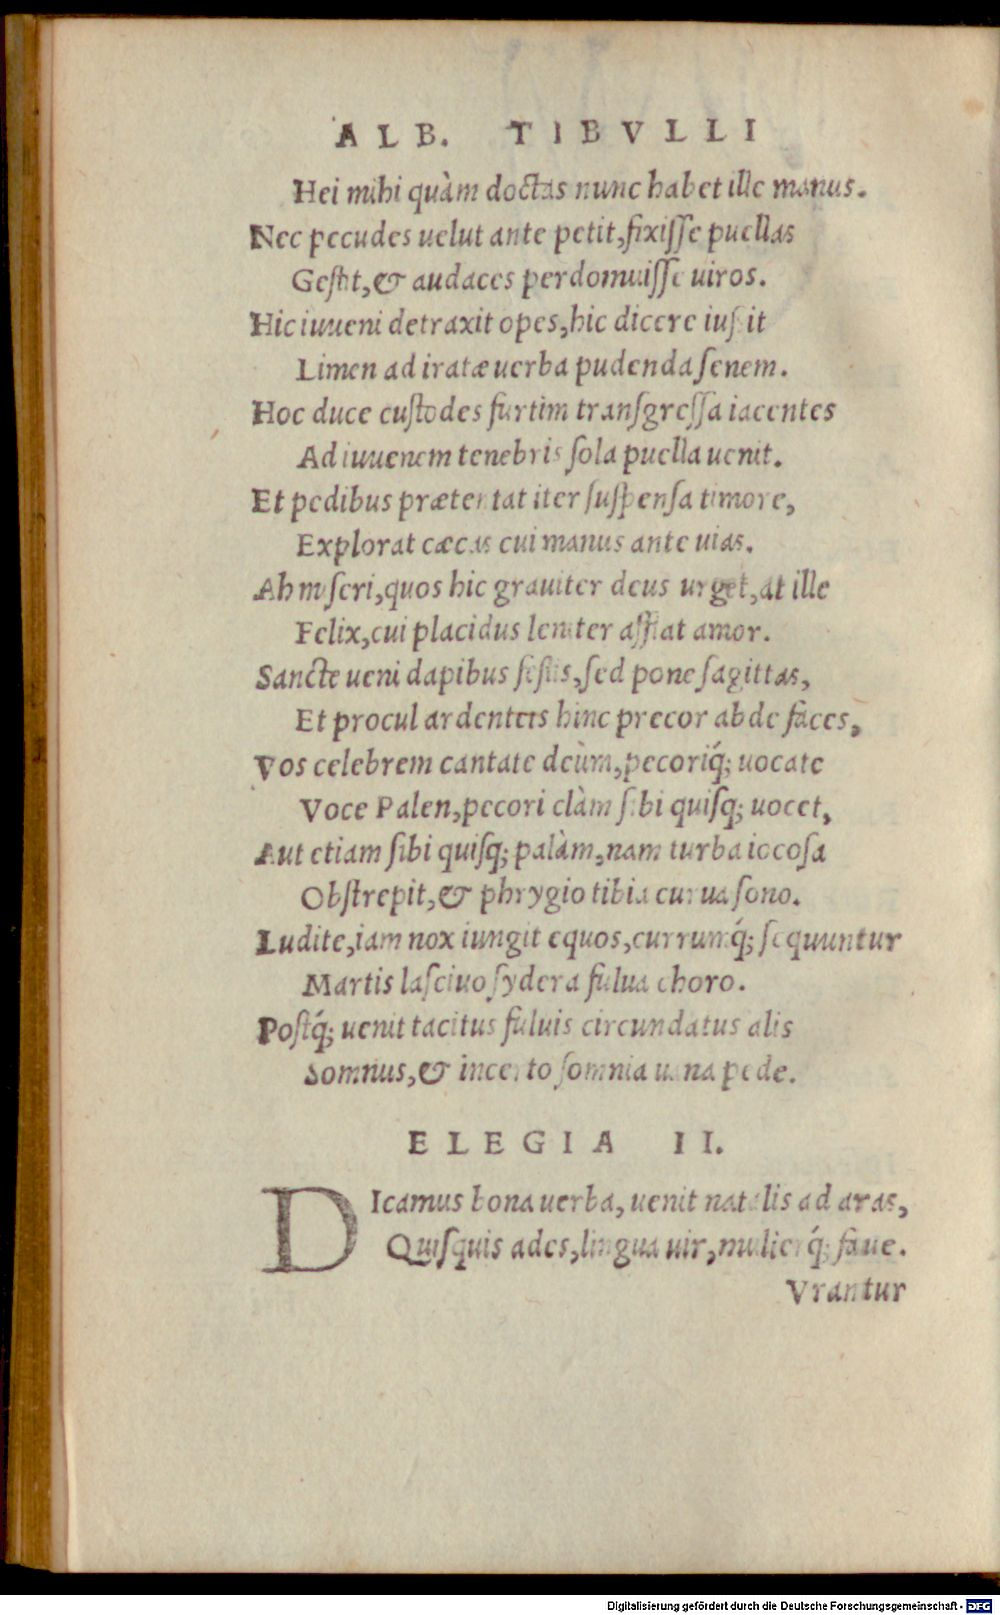 ALB. TIBVLLI
Hei mihi quàm doctas nunc habet ille manus.
Nec pecudes uelut ante petit, fixiſſe puellas
Geſtit, & audaces perdomuiſſe uiros.
Hic iuueni detraxit opes, hic dicere iuſſit
Limen ad iratæ uerba pudenda ſenem.
Hoc duce cuſtodes furtim tranſgreſſa iacentes
Ad iuuenem tenebris ſola puella uenit.
Et pedibus prætentat iter ſuſpenſa timore,
Explorat cæcas cui manus ante uias.
Ah miſeri, quos hic grauiter deus urget, at ille
Felix, cui placidus leniter afflat amor.
Sancte ueni dapibus feſtis, ſed pone ſagittas,
Et procul ardenteis hinc precor abde faces,
Vos celebrem cantate deùm, pecoriq́; uocate
Voce Palen, pecori clàm ſibi quiſq; uocet,
Aut etiam ſibi quiſq; palàm, nam turba iocoſa
Obſtrepit, & phrygio tibia curua ſono.
Ludite, iam nox iungit equos, currumq́; ſequuntur
Martis laſciuo ſydera fulua choro.
Poſtq́; uenit tacitus fuluis circundatus alis
Somnus, & incerto ſomnia uana pede.
ELEGIA II.
DIcamus bona uerba, uenit natalis ad aras,
Quiſquis ades, lingua uir, mulierq́; faue.
Vrantur
Digitalisierung gefördert durch die Deutsche Forschungsgemeinschaft - DFG